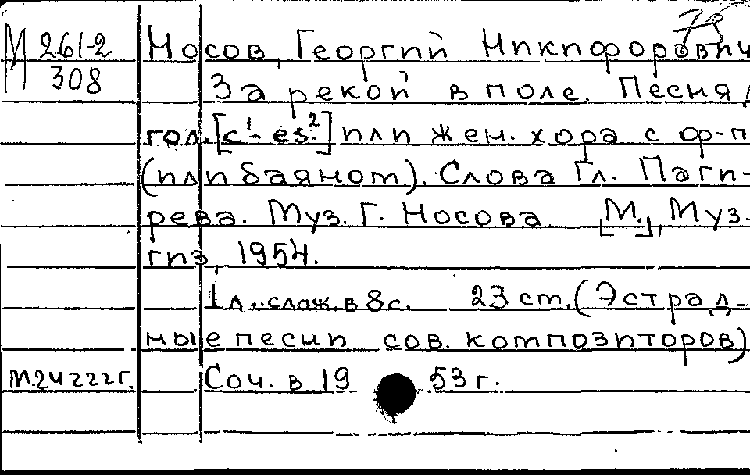 75
М 261-2
308
Носов, Георгий Никифорович
За рекой в поле. Песня д
гол. [c¹-es²] или жен. хора с ф-п
(или баяном). Слова Гл. Паги-
рева. Муз. Г. Носова. [М.], Муз-
гиз, 1954.
1 л., слож. в 8с. 23 cm. (Эстрад-
ные песни сов. композиторов)
М24222г. Соч. в 1953г.